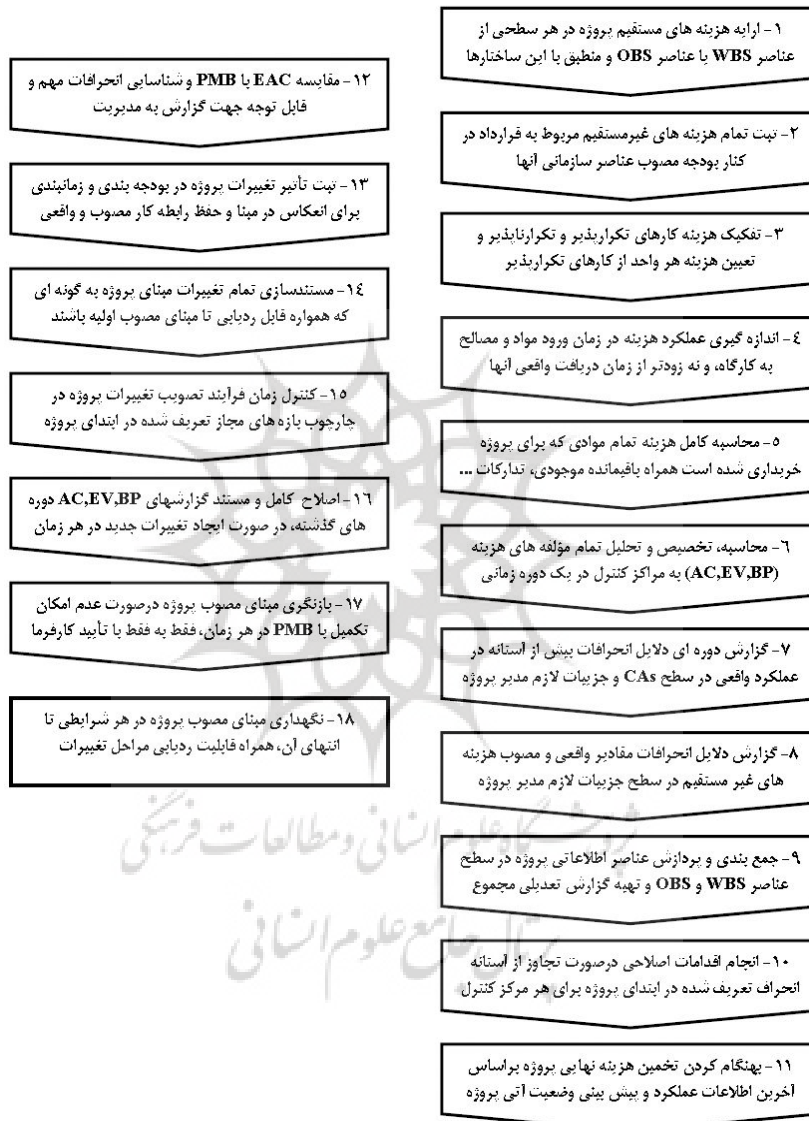 ۱- ارایه هزینه های مستقیم پروژه در هر سطحی از
عناصر WBS یا عناصر OBS و منطبق با این ساختارها
۲- ثبت تمام هزینه های غیرمستقیم مربوط به قرارداد در
کنار بودجه مصوب عناصر سازمانی آنها
۳- تفکیک هزینه کارهای تکرارپذیر و تکرارناپذیر و
تعیین هزینه هر واحد از کارهای تکرارپذیر
۴- اندازه گیری عملکرد هزینه در زمان ورود مواد و مصالح
به کارگاه، و نه زودتر از زمان دریافت واقعی آنها
۵- محاسبه کامل هزینه تمام موادی که برای پروژه
خریداری شده است همراه باقیمانده موجودی، تدارکات ...
۶- محاسبه، تخصیص و تحلیل تمام مؤلفه های هزینه
(AC,EV,BP) به مراکز کنترل در یک دوره زمانی
۷- گزارش دوره ای دلایل انحرافات بیش از آستانه در
عملکرد واقعی در سطح CAs و جزییات لازم مدیر پروژه
۸- گزارش دلایل انحرافات مقادیر واقعی و مصوب هزینه
های غیر مستقیم در سطح جزییات لازم مدیر پروژه
۹- جمع بندی و پردازش عناصر اطلاعاتی پروژه در سطح
عناصر WBS و OBS و تهیه گزارش تعدیلی مجموع
۱۰- انجام اقدامات اصلاحی درصورت تجاوز از آستانه
انحراف تعریف شده در ابتدای پروژه برای هر مرکز کنترل
۱۱- بهنگام کردن تخمین هزینه نهایی پروژه براساس
آخرین اطلاعات عملکرد و پیش بینی وضعیت آتی پروژه
۱۲- مقایسه EAC با PMB و شناسایی انحرافات مهم و
قابل توجه جهت گزارش به مدیریت
۱۳- ثبت تأثیر تغییرات پروژه در بودجه بندی و زمانبندی
برای انعکاس در مبنا و حفظ رابطه کار مصوب و واقعی
۱۴- مستندسازی تمام تغییرات مبنای پروژه به گونه ای
که همواره قابل ردیابی تا مبنای مصوب اولیه باشند
۱۵- کنترل زمان فرآیند تصویب تغییرات پروژه در
چارچوب بازه های مجاز تعریف شده در ابتدای پروژه
۱۶- اصلاح کامل و مستند گزارشهای AC,EV,BP دوره
های گذشته، در صورت ایجاد تغییرات جدید در هر زمان
۱۷- بازنگری مبنای مصوب پروژه درصورت عدم امکان
تکمیل با PMB در هر زمان، فقط به فقط با تأیید کارفرما
۱۸- نگهداری مبنای مصوب پروژه در هر شرایطی تا
انتهای آن، همراه قابلیت ردیابی مراحل تغییرات
پژوهشگاه علوم انسانی و مطالعات فرهنگی
پرتال جامع علوم انسانی